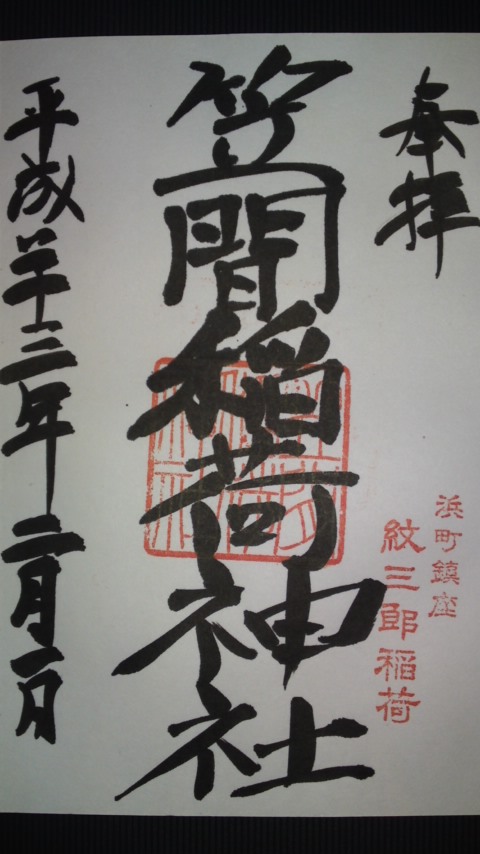 奉拝
浜町鎮座
紋三郎稲荷
笠間稲荷神社
平成二十三年二月一日